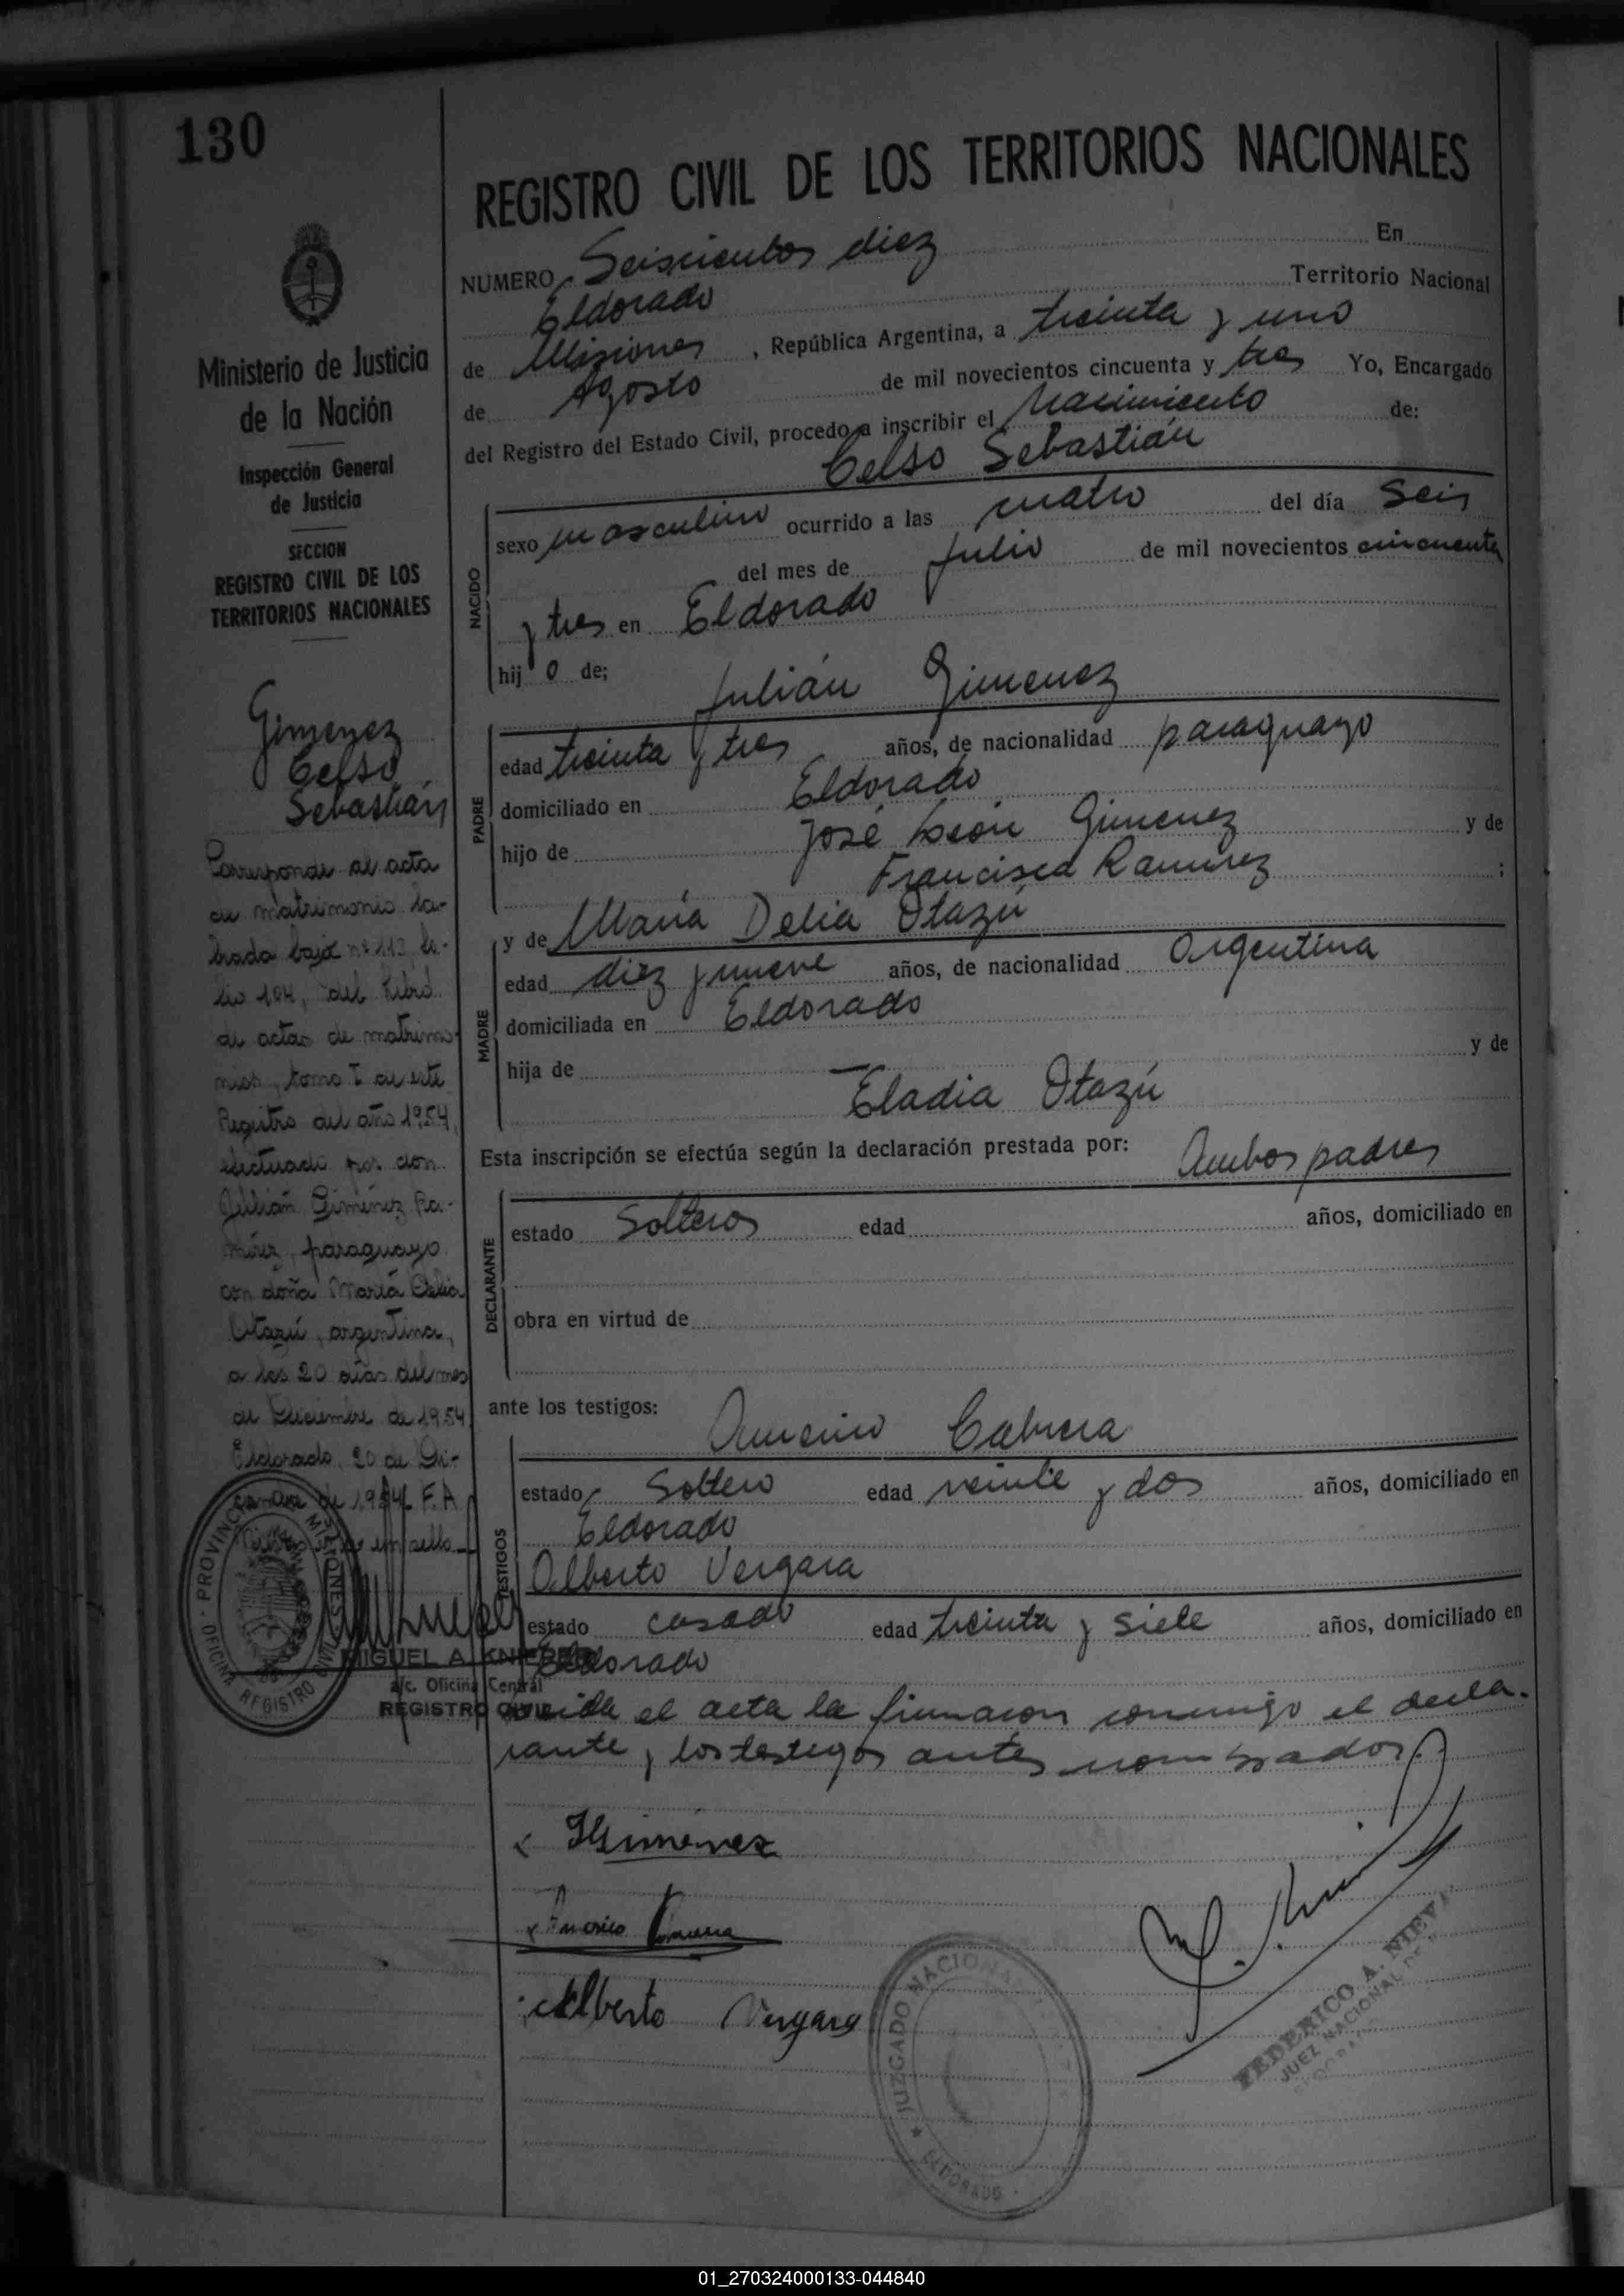 130
Ministerio de Justicia
de la Nación
Inspección General
de Justicia
SECCION
REGISTRO CIVIL DE LOS
TERRITORIOS NACIONALES
Gimenez
Celso
Sebastián
Corresponde al acta
de matrimonio la-
brada bajo nº 113, fo-
lio 104, del Libro
de actas de matrimo-
nios, tomo I de este
Registro del año 1954,
efectuado por don
Julián Giménez Ra-
mírez, paraguayo
con doña María Delia
Otazú, argentina,
a los 20 días del mes
de Diciembre de 1954
Eldorado, 20 de Di-
de 1954 F.A.
sello
PROVINCIA MISIONES
OFICINA REGISTRO CIVIL
MIGUEL A.
a/c. Oficina Central
REGISTRO CIVIL
REGISTRO CIVIL DE LOS TERRITORIOS NACIONALES
NUMERO Seiscientos diez En
Eldorado Territorio Nacional
de Misiones, República Argentina, a treinta y uno
de Agosto de mil novecientos cincuenta y tres Yo, Encargado
del Registro del Estado Civil, procedo a inscribir el Nacimiento de:
Celso Sebastián
NACIDO
sexo masculino ocurrido a las cuatro del día Seis
del mes de Julio de mil novecientos cincuenta
y tres en Eldorado
hijo de;
Julián Gimenez
PADRE
edad treinta y tres años, de nacionalidad paraguayo
domiciliado en Eldorado
hijo de José León Gimenez y de
Francisca Ramírez ;
y de María Delia Otazú
MADRE
edad diez y nueve años, de nacionalidad Argentina
domiciliada en Eldorado
hija de y de
Eladia Otazú
Esta inscripción se efectúa según la declaración prestada por: Ambos padres
DECLARANTE
estado Solteros edad años, domiciliado en
obra en virtud de
ante los testigos:
Cabrera
TESTIGOS
estado Soltero edad veinte y dos años, domiciliado en
Eldorado
Alberto Vergara
estado casado edad treinta y siete años, domiciliado en
Eldorado
el acta la firmaron conmigo el decla-
rante y los testigos antes nombrados.
Giménez
Alberto Vergara
JUZGADO NACIONAL
ELDORADO
FEDERICO A.
JUEZ NACIONAL DE
01_270324000133-044840